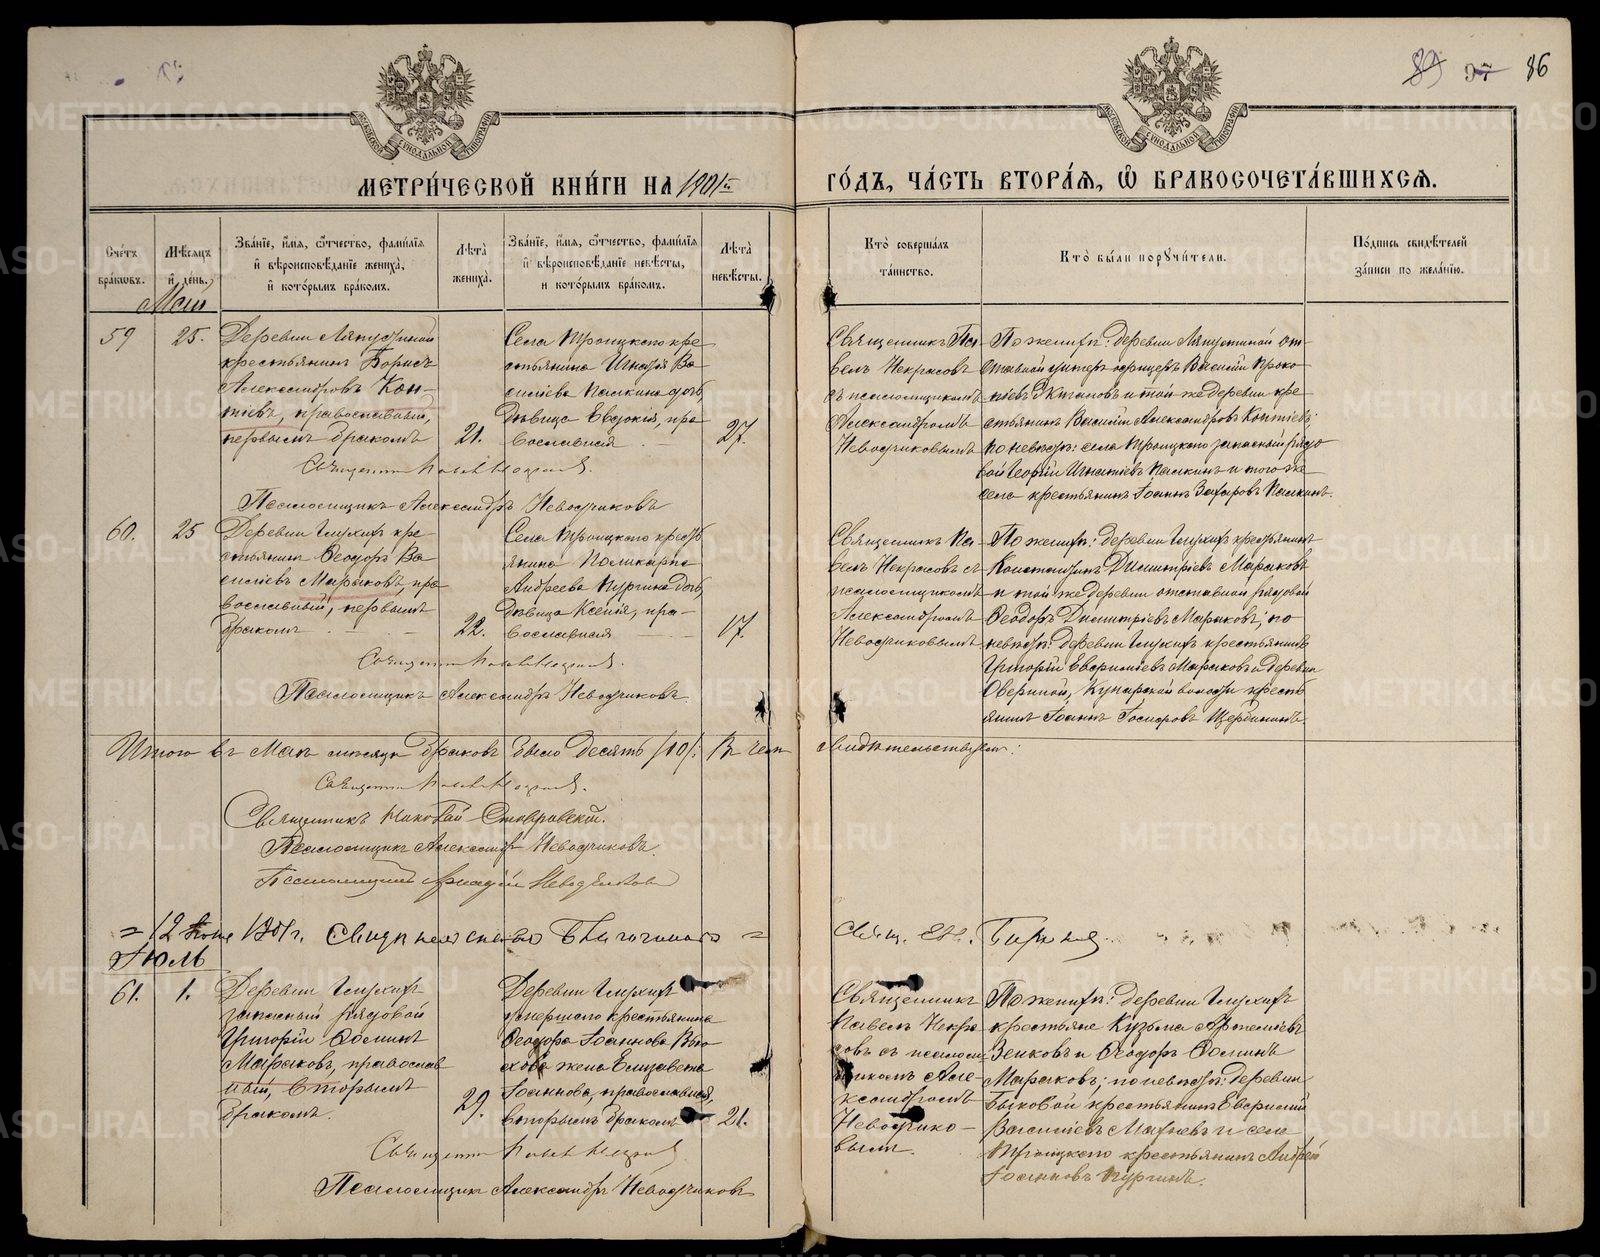 89 97 86
МОСКОВСКОЙ СѴНОДАЛЬНОЙ ТИПОГРАФІИ
МОСКОВСКОЙ СѴНОДАЛЬНОЙ ТИПОГРАФІИ
МЕТРИ́ЧЕСКОЙ КНИ́ГИ НА 1901й
ГО́ДЪ, ЧА́СТЬ ВТОРА́Ѧ, Ѽ БРАКОСОЧЕТА́ВШИХСѦ.
Сче́тъ бра́кѡвъ.
Мѣ́сѧцъ и҆ де́нь.
Зва́нїе, и҆́мѧ, ѻ҆́тчество, фами́лїѧ и҆ вѣроисповѣ́данїе жениха̀, и҆ кото́рымъ бра́комъ.
Лѣта̀ жениха̀.
Зва́нїе, и҆́мѧ, ѻ҆́тчество, фами́лїѧ и҆ вѣроисповѣ́данїе невѣ́сты, и кото́рымъ бра́комъ.
Лѣта̀ невѣ́сты.
Кто̀ соверша́лъ та́инство.
Кто̀ бы́ли порꙋчи́тели.
По́дпись свидѣ́телей за́писи по жела́нїю.
Май
59
25.
Деревни Ляпустиной
крестьянинъ Борисъ
Александровъ Коп-
тѣевъ, православный,
первымъ бракомъ
21.
Села Троицкаго кре
стьянина Игнатія Ва
сильева Палкина дочь,
дѣвица Евдокія, пра
вославная
27.
Священникъ Па-
велъ Некрасовъ
съ псаломщикомъ
Александромъ
Неводчиковымъ
По женихѣ: деревни Ляпустиной от-
ставной унтеръ офицеръ Василій Проко-
піевъ и той же деревни кре
стьянинъ Василій Александровъ Коптѣевъ;
по невѣстѣ: села Троицкаго запасный рядо
вой Георгій Игнатіевъ Палкинъ и того же
села крестьянинъ Іоаннъ Захаровъ Палкинъ.
Священникъ Павелъ Некрасовъ.
Псаломщикъ Александръ Неводчиковъ
60.
25
Деревни Глухихъ кре
стьянинъ Ѳеодоръ Ва
сильевъ Марьковъ, пра
вославный, первымъ
бракомъ
22.
Села Троицкаго кресть
янина Поликарпа
Андреева Пургина дочь,
дѣвица Ксенія, пра-
вославная
17.
Священникъ Па-
велъ Некрасовъ съ
псаломщикомъ
Александромъ
Неводчиковымъ
По женихѣ: деревни Глухихъ крестьянинъ
Константинъ Димитріевъ Марьковъ
и той же деревни отставной рядовой
Ѳеодоръ Димитріевъ Марьковъ; по
невѣстѣ: деревни Глухихъ крестьянинъ
Григорій Марьковъ и деревни
волости кресть
янинъ Іоаннъ Щербининъ.
Священникъ Павелъ Некрасовъ.
Псаломщикъ Александръ Неводчиковъ.
Итого въ Маѣ мѣсяцѣ браковъ было десять /10/. Въ чемъ свидѣтельствуемъ:
Священникъ Павелъ Некрасовъ.
Священникъ Николай
Псаломщикъ Александръ Неводчиковъ.
Псаломщикъ Аркадій
= 12 Іюня 1901 г. =
Свящ. Евг.
Іюль
61.
1.
Деревни Глухихъ
запасный рядовой
Григорій Ѳоминъ
Марьковъ, православ
ный, вторымъ
бракомъ.
29.
Деревни Глухихъ
умершаго крестьянина
Ѳеодора Іоаннова
жена Елизавета
Іоаннова, православная,
вторымъ бракомъ
21.
Священникъ
Павелъ Некра
совъ съ псалом
щикомъ Але-
ксандромъ
Неводчико-
вымъ.
По женихѣ: деревни Глухихъ
крестьяне Кузьма Артеміевъ
Зенковъ и Ѳеодоръ Ѳоминъ
Марьковъ; по невѣстѣ: деревни
Быковой крестьянинъ
Василіевъ и села
Троицкаго крестьянинъ Андрей
Іоанновъ Пургинъ.
Священникъ Павелъ Некрасовъ.
Псаломщикъ Александръ Неводчиковъ
METRIKI.GASO-URAL.RU